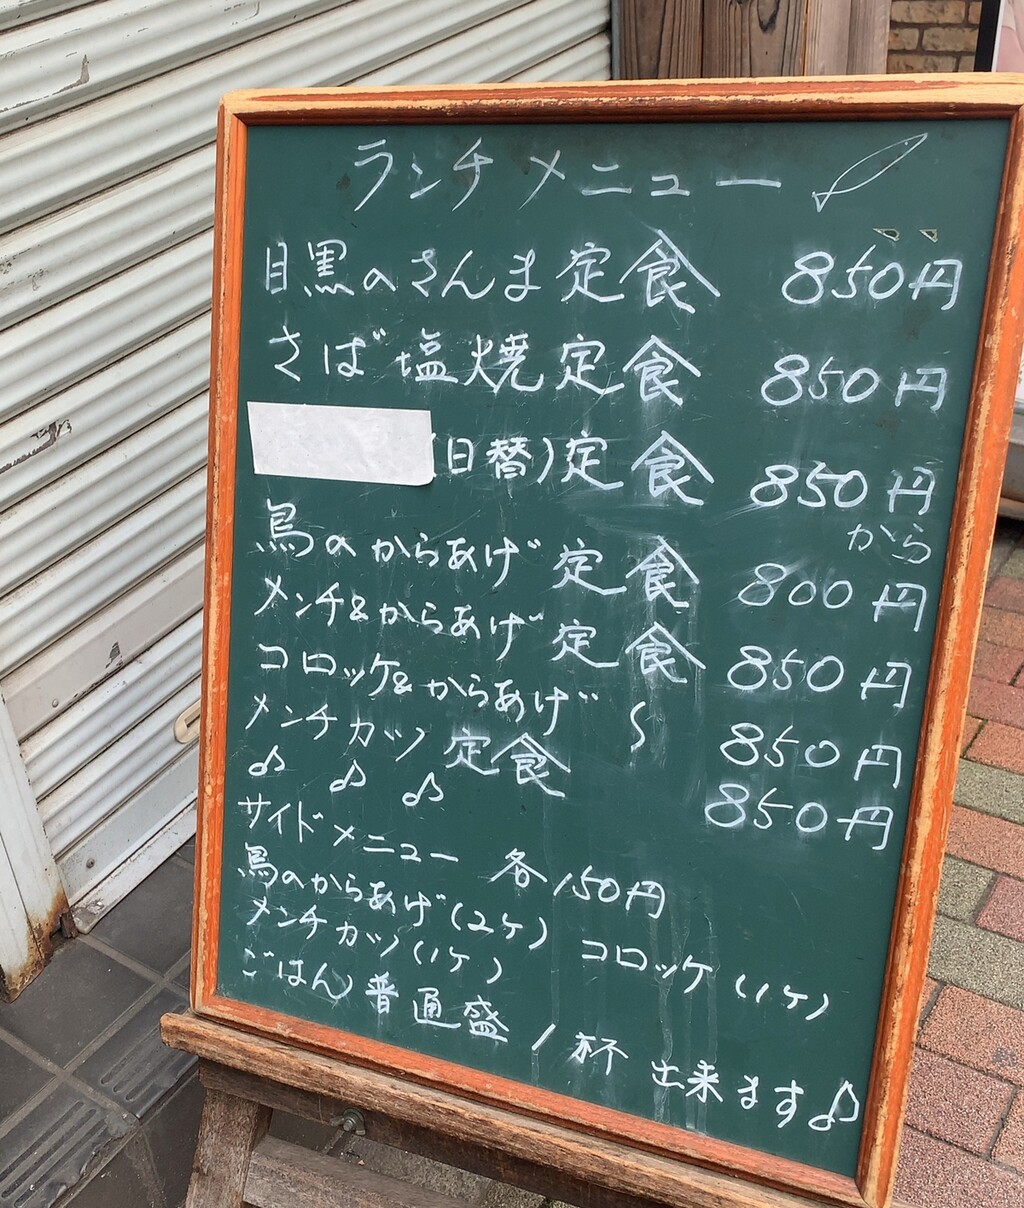 ランチメニュー
目黒のさんま定食 850円
さば塩焼定食 850円
(日替)定食 850円
から
鳥のからあげ定食 800円
メンチ&からあげ定食 850円
コロッケ&からあげ 〃 850円
メンチカツ定食 850円
♪ ♪ ♪
サイドメニュー 各150円
鳥のからあげ(2ヶ) コロッケ(1ヶ)
メンチカツ(1ヶ)
ごはん普通盛1杯出来ます♪